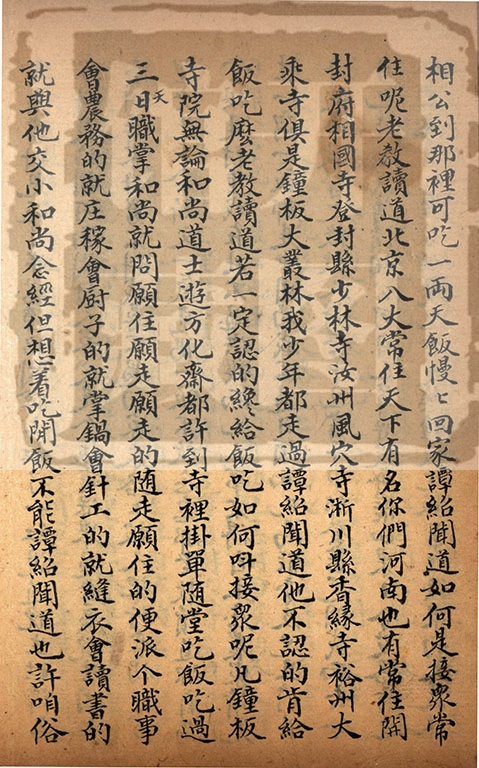 相公到那裡可吃一兩天飯慢〻回家譚紹聞道如何是接衆常
住呢老教讀道北京八大常住天下有名你們河南也有常住開
封府相國寺登封縣少林寺汝州風穴寺淅川縣香縁寺裕州大
乘寺俱是鐘板大叢林我少年都走過譚紹聞道他不認的肯給
飯吃麽老教讀道若一定認的纔給飯吃如何呌接衆呢凡鐘板
寺院無論和尚道士遊方化齋都許到寺裡掛單随堂吃飯吃過
三日天職掌和尚就問願住願走願走的随走願住的便派个職事
會農務的就庄稼會厨子的就掌鍋會針工的就縫衣會讀書的
就與他交小和尚念經但想着吃閒飯不能譚紹聞道也許咱俗